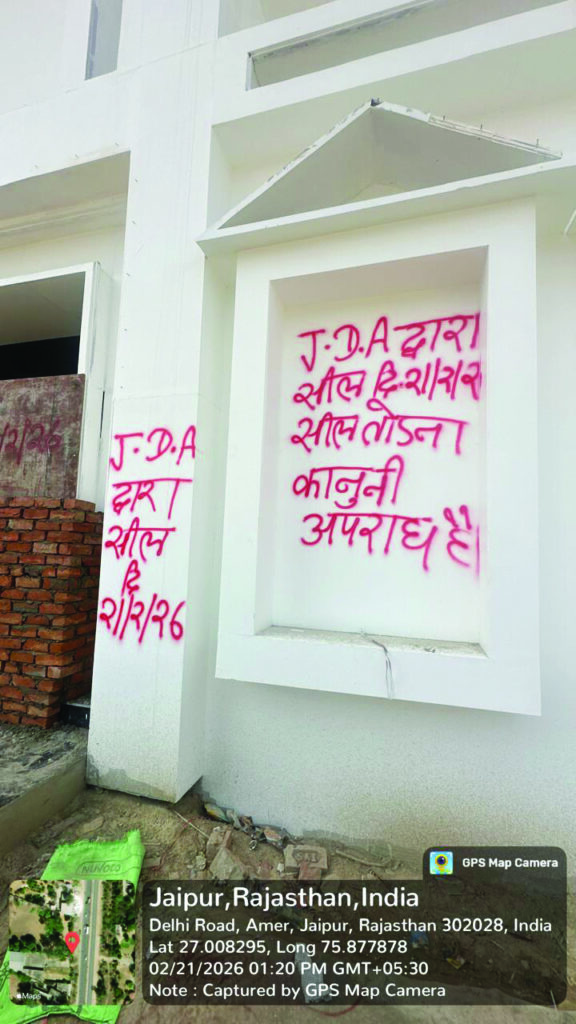 J.D.A द्वारा
सील दि. २१/२/२
सील तोडना
कानुनी
अपराध है।
J.D.A
द्वारा
सील
दि
२१/२/२६
/2/26
NUVOCO
GPS Map Camera
Jaipur,Rajasthan,India
Delhi Road, Amer, Jaipur, Rajasthan 302028, India
Lat 27.008295, Long 75.877878
02/21/2026 01:20 PM GMT+05:30
Note : Captured by GPS Map Camera
Maps